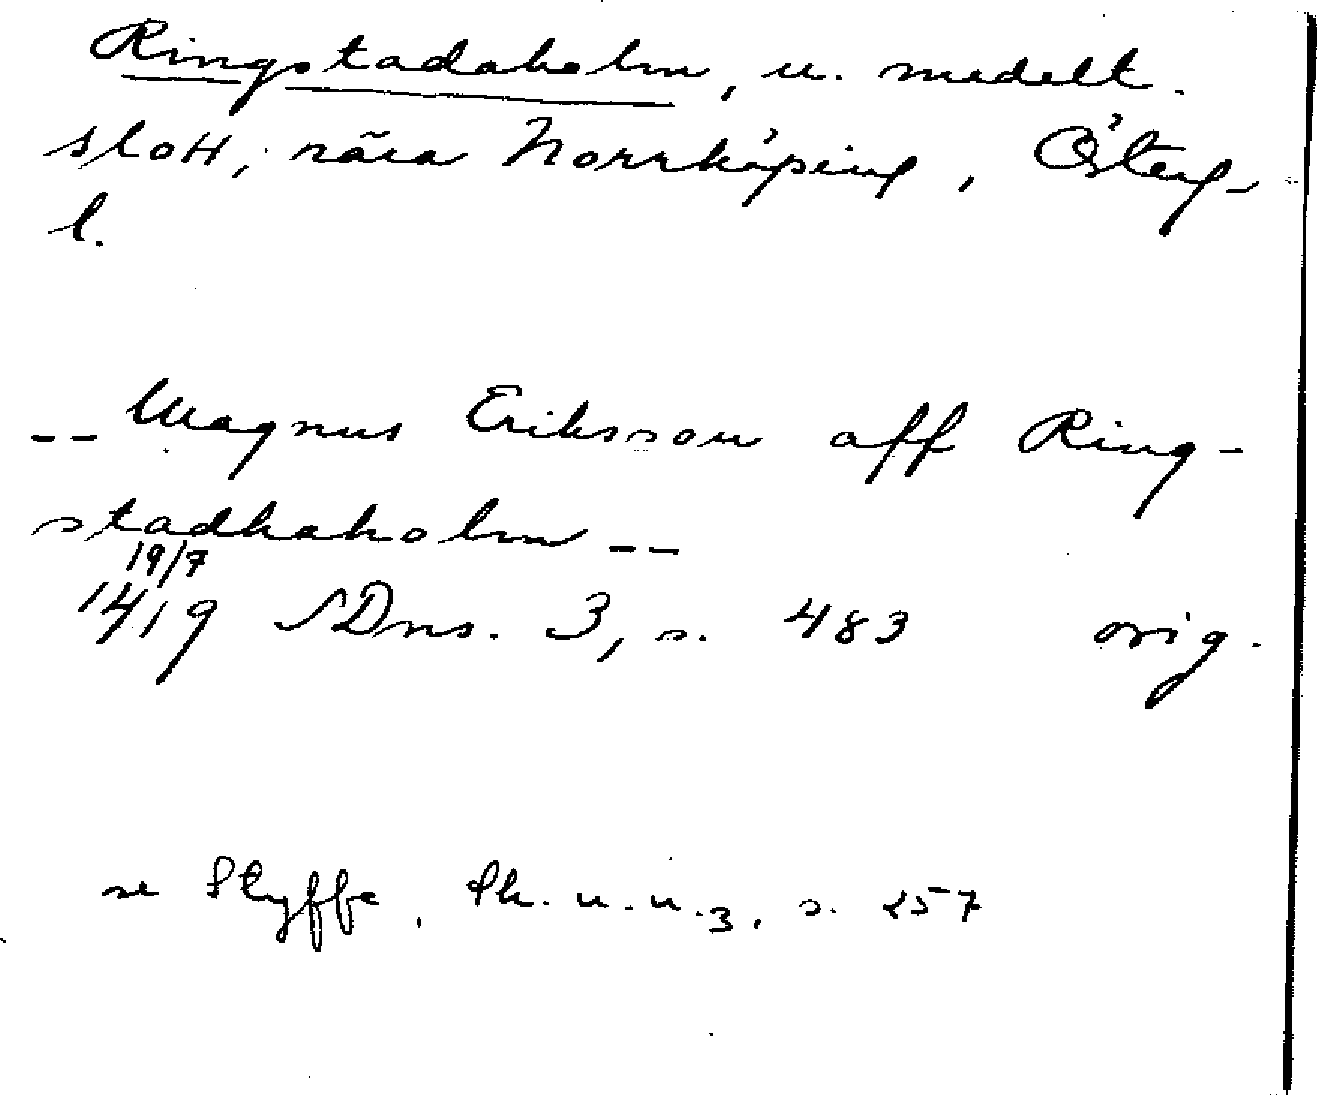 Ringstadaholm, u. medelt.
slott, nära Norrköping, Österg-
l.
-- Magnus Eriksson aff Ring-
stadhaholm --
19/7
1419 SDns. 3, s. 483 orig.
se Styffe, Sk. u. u. 3, s. 257